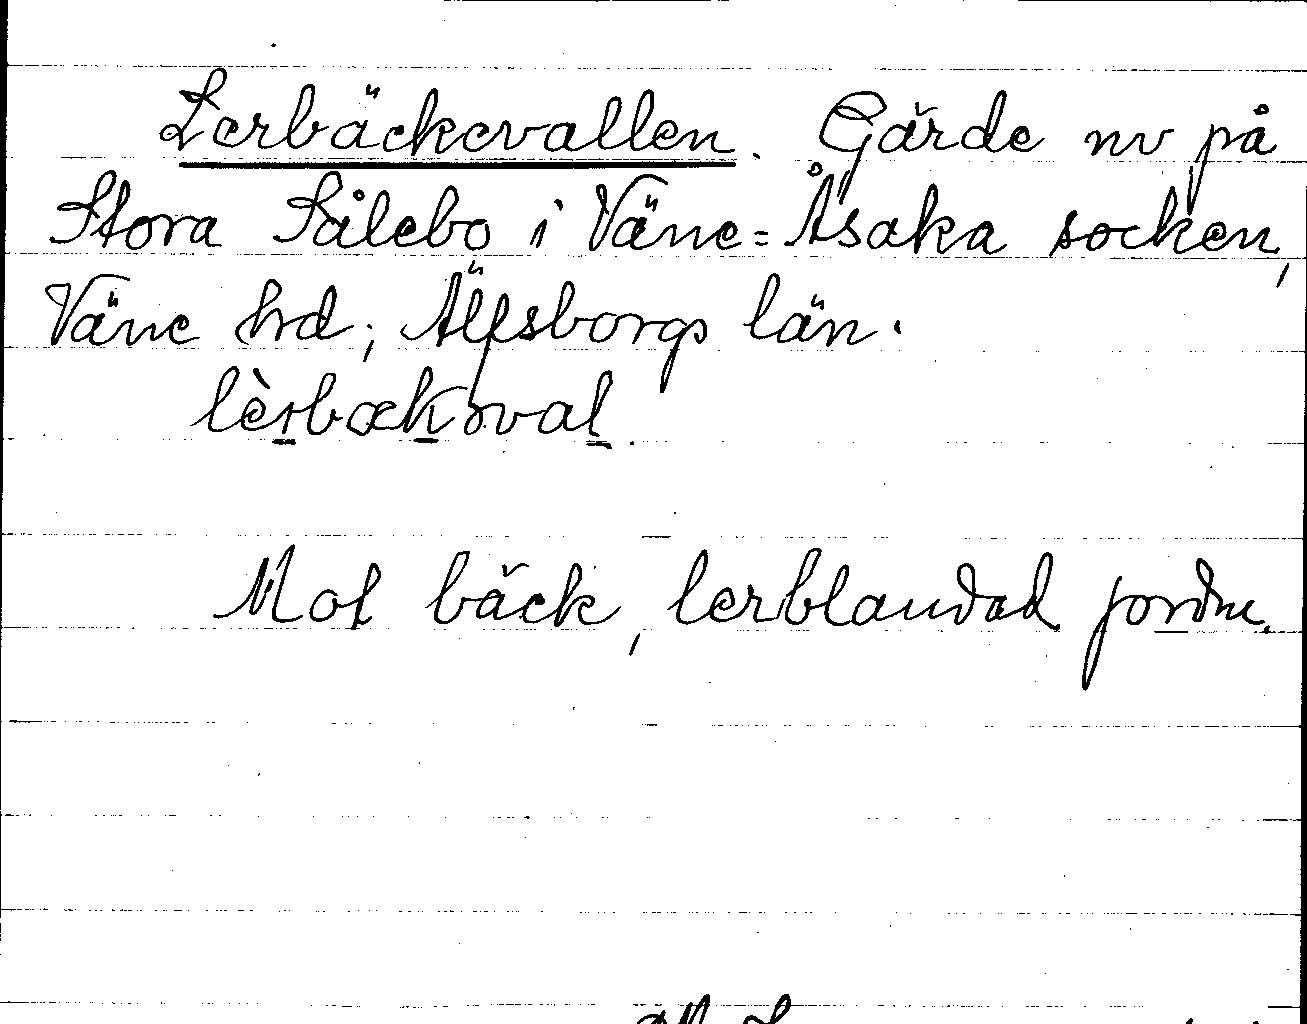 Lerbäckevallen. Gärde nv på
Stora Sålebo i Väne-Åsaka socken,
Väne hrd; Älfsborgs län.
lèrbækəval.
Mot bäck, lerblandad jordm.